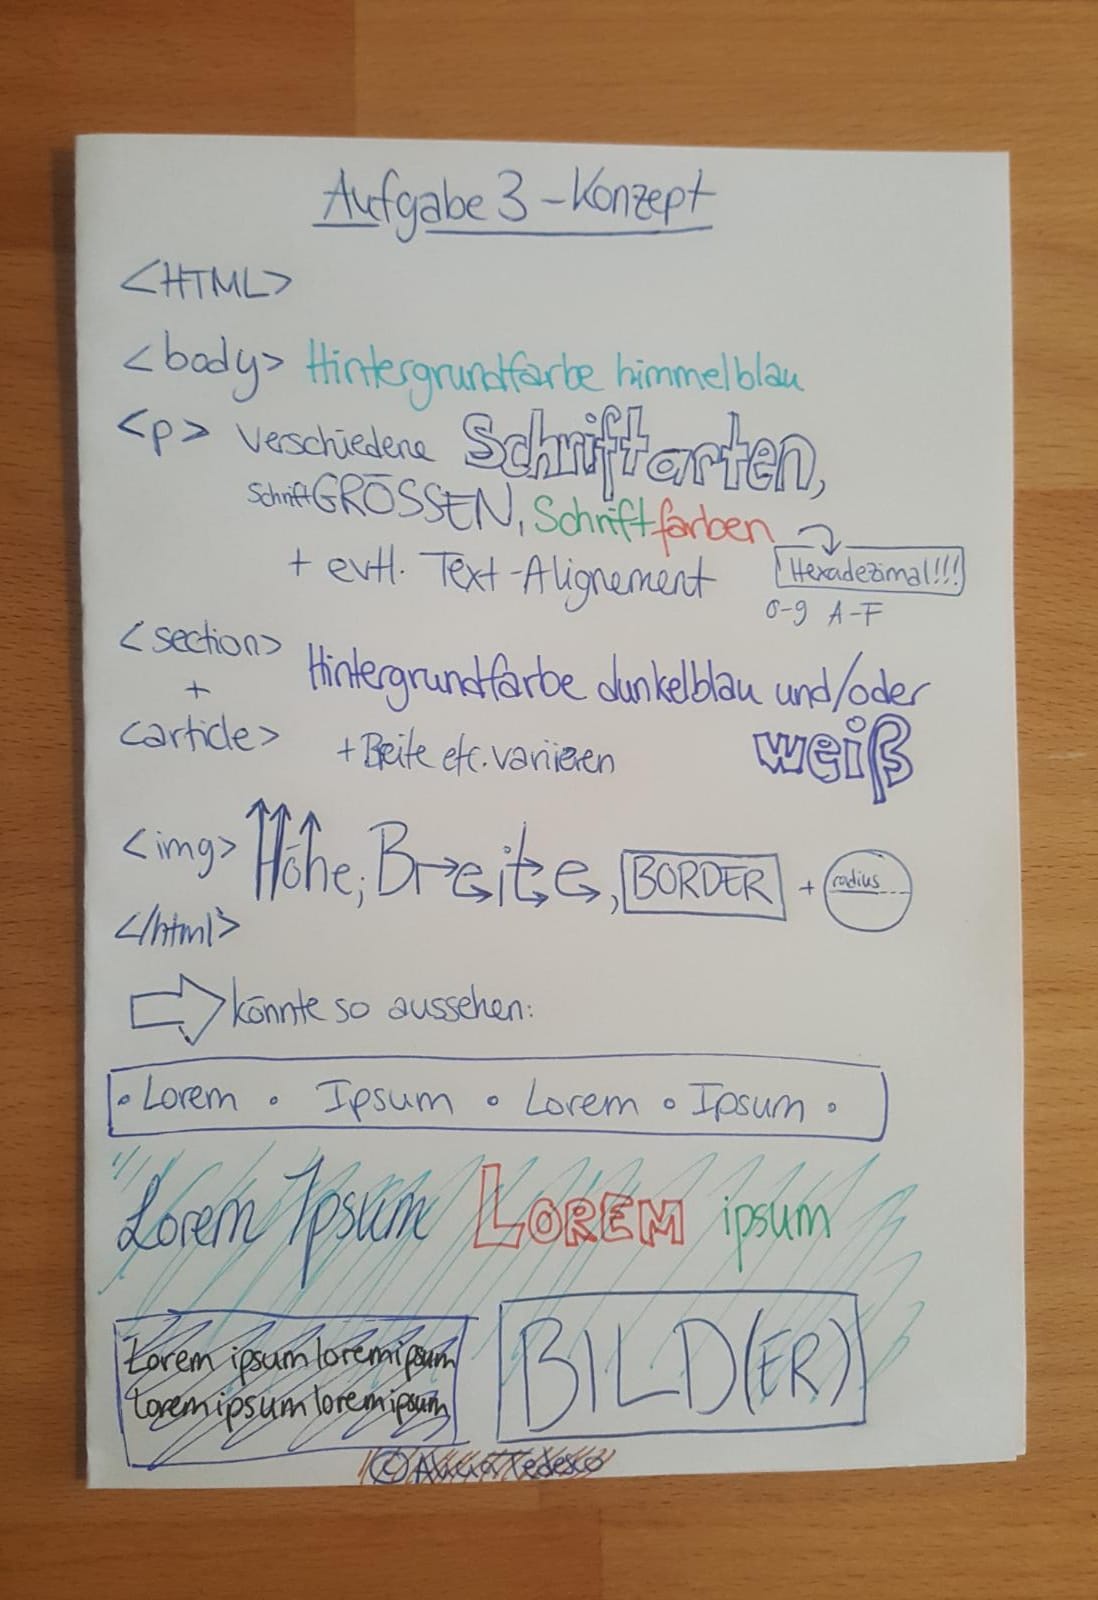 Aufgabe 3 - Konzept
<HTML>
<body> Hintergrundfarbe himmelblau
<p> Verschiedene Schriftarten,
SchriftGRÖSSEN, Schriftfarben
+ evtl. Text-Alignement
Hexadezimal!!!
0-9 A-F
<section>
+
<article>
Hintergrundfarbe dunkelblau und/oder
weiß
+ Breite etc. variieren
<img> Höhe, Breite, BORDER + radius
</html>
könnte so aussehen:
• Lorem • Ipsum • Lorem • Ipsum •
Lorem Ipsum LOREM ipsum
Lorem ipsum lorem ipsum
lorem ipsum lorem ipsum
BILD(ER)
© Tedesco